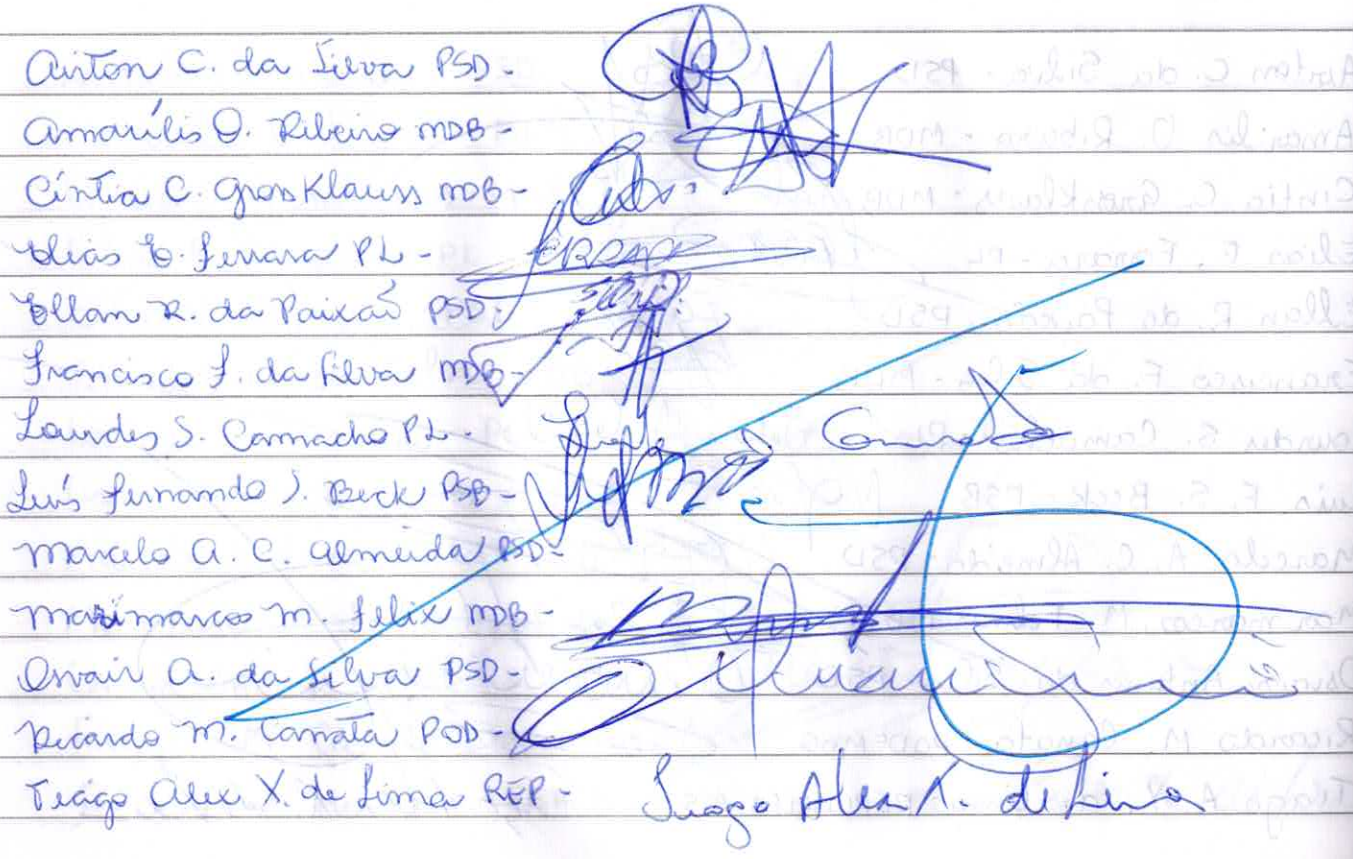 Airton C. da Silva PSD -
Amarílis O. Ribeiro MDB -
Cíntia C. Grosklauss MDB -
Elias E. Ferrara PL -
Ellan R. da Paixão PSD -
Francisco F. da Silva MDB -
Lourdes S. Camacho PL -
Luís Fernando S. Beck PSB -
Marcelo A. C. Almeida PSD -
Marimarcos M. Felix MDB -
Osvair A. da Silva PSD -
Ricardo M. Canata POD -
Tiago Alex. X. de Lima REP - Tiago Alex X. de Lima